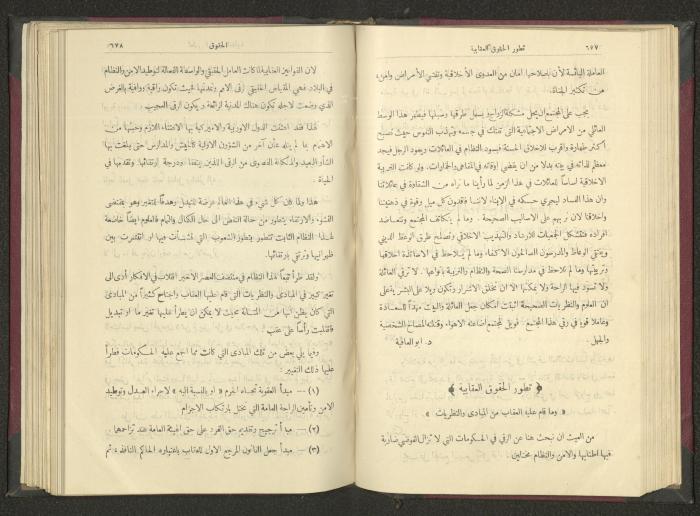 ٦٧٧ تطور الحقوق العقابية
العاملة اليائسة لأن باصلاحها أمان من العدوى الأخلاقية وتفشي الأمراض
من تكثير الحياة.
يجب على المجتمع ان يحل مشكلة الزواج ويسهل طرقها وسبلها فيتغير هذا الوسط
العائلي من الامراض الاجتماعية التي تفتك في جسمه وتهذب النفوس حيث تصبح
أكثر طهارة واقرب للاخلاق الحسنة فيسود النظام في العائلات ويعود الرجل فيجد
معظم لذاته في بيته بدلا من ان يقضي اوقاته في المقاهي والخمارات. ولو كانت التربية
الاخلاقية اساساً للعائلات في هذا الزمن لما رأينا ما نراه من الشقاوة في عائلاتنا
وان هذا الفساد ليجري حسكه في الابناء لاننا فاقدون كل ميل وقوة في ذهنيتنا
واخلاقنا لان نربيهم على الاساليب الصحيحة. وما لم يتكاتف المجتمع وتتعاضد
افراده فتتشكل الجمعيات للارشاد والتهذيب الاخلاقي وتصلح طرق الوعظ الديني
وينتقى الوعاظ والمدرسون الصالحون الاكفاء وما لم يلاحظ في الاصلاحة اخلاقها
وتربيتها وما لم نلاحظ في مدارسنا الصحة والنظام والتربية بانواعها. لا ترقى العائلة
ولا تسود فيها الراحة ولا يمكنها الا ان تخلق الاشرار وتكون وبلا على البشر
ان العلوم والنظريات الصحيحة اثبتت امكان جعل العائلة والبيت مهداً للسعادة
وعاملا قويا في رقي هذا المجتمع. فويل لمجتمع اضاعته الاهواء وقتلته المصالح الشخصية
والجهل. د. ابو العافية
﴿ تطور الحقوق العقابية ﴾
« وما قام عليه العقاب من المبادئ والنظريات »
من العبث ان نبحث هنا عن الرقي في الحكومات التي لا تزال الفوضى ضاربة
فيها اطنابها والامن والنظام مختلين
الحقوق ٦٧٨
لان القوانين العقابية كانت العامل الحقيقي والواسطة الفعالة لتوطيد الامن والنظام
في البلاد فهي المقياس الحقيقي لرقي الامم وتمدنها بحيث تكون راقية ووافية بالغرض
الذي وضعت لاجله تكون هنالك المدنية الرائعة ويكون الرقي العجيب
لهذا فقد اعتنت الدول الاوربية والاميركية بها الاعتناء اللازم وخصتها من
الاهتمام بما لم ينله شأن آخر من شؤون الاولية كالجيش والمدارس حتى بلغت بها
الشأو البعيد والمكانة القصوى من الرقي الذين يتفقان ودرجة ارتقائها وتقدمها في
الحياة.
هذا ولما كان كل شيء في هذا العالم عرضة للتبدل وهدفاً للتغير وهو بمقتضى
النشوء والارتقاء يتطور من حالة النقص الى حال الكمال والتمام فالعلوم ايضاً خاضعة
لهذا النظام الثابت تتطور بتطور الشعوب التي نشأت فيها او انتشرت بين
ظهرانيها وترتقي بارتقائها.
ولقد طرأ تبعاً لهذا النظام في منتصف العصر الاخير انقلاب في الافكار أدى الى
تغير كبير في المبادئ والنظريات التي قام عليها العقاب واجتاح كثيراً من المبادئ
التي كان يظن انها من المتانة بحيث لا يمكن ان يطرأ عليها تغير ما او تبديل
فانقلبت رأساً على عقب
وفيما يلي بعض من تلك المبادئ التي كانت مما اجمع عليه الحكومات فطرأ
عليها ذلك التغيير:
(١) — مبدأ العقوبة تجاه الجرم « او بالنسبة اليه » لاجراء العدل وتوطيد
الامن وتأمين الراحة العامة التي تختل بارتكاب الاجرام
(٢) — مبدأ ترجيح وتقديم حق الفرد على حق الهيئة العامة عند تزاحمها
(٣) — مبدأ جعل القانون المرجع الاول للعقاب باعتباره الحاكم النافذ، ثم